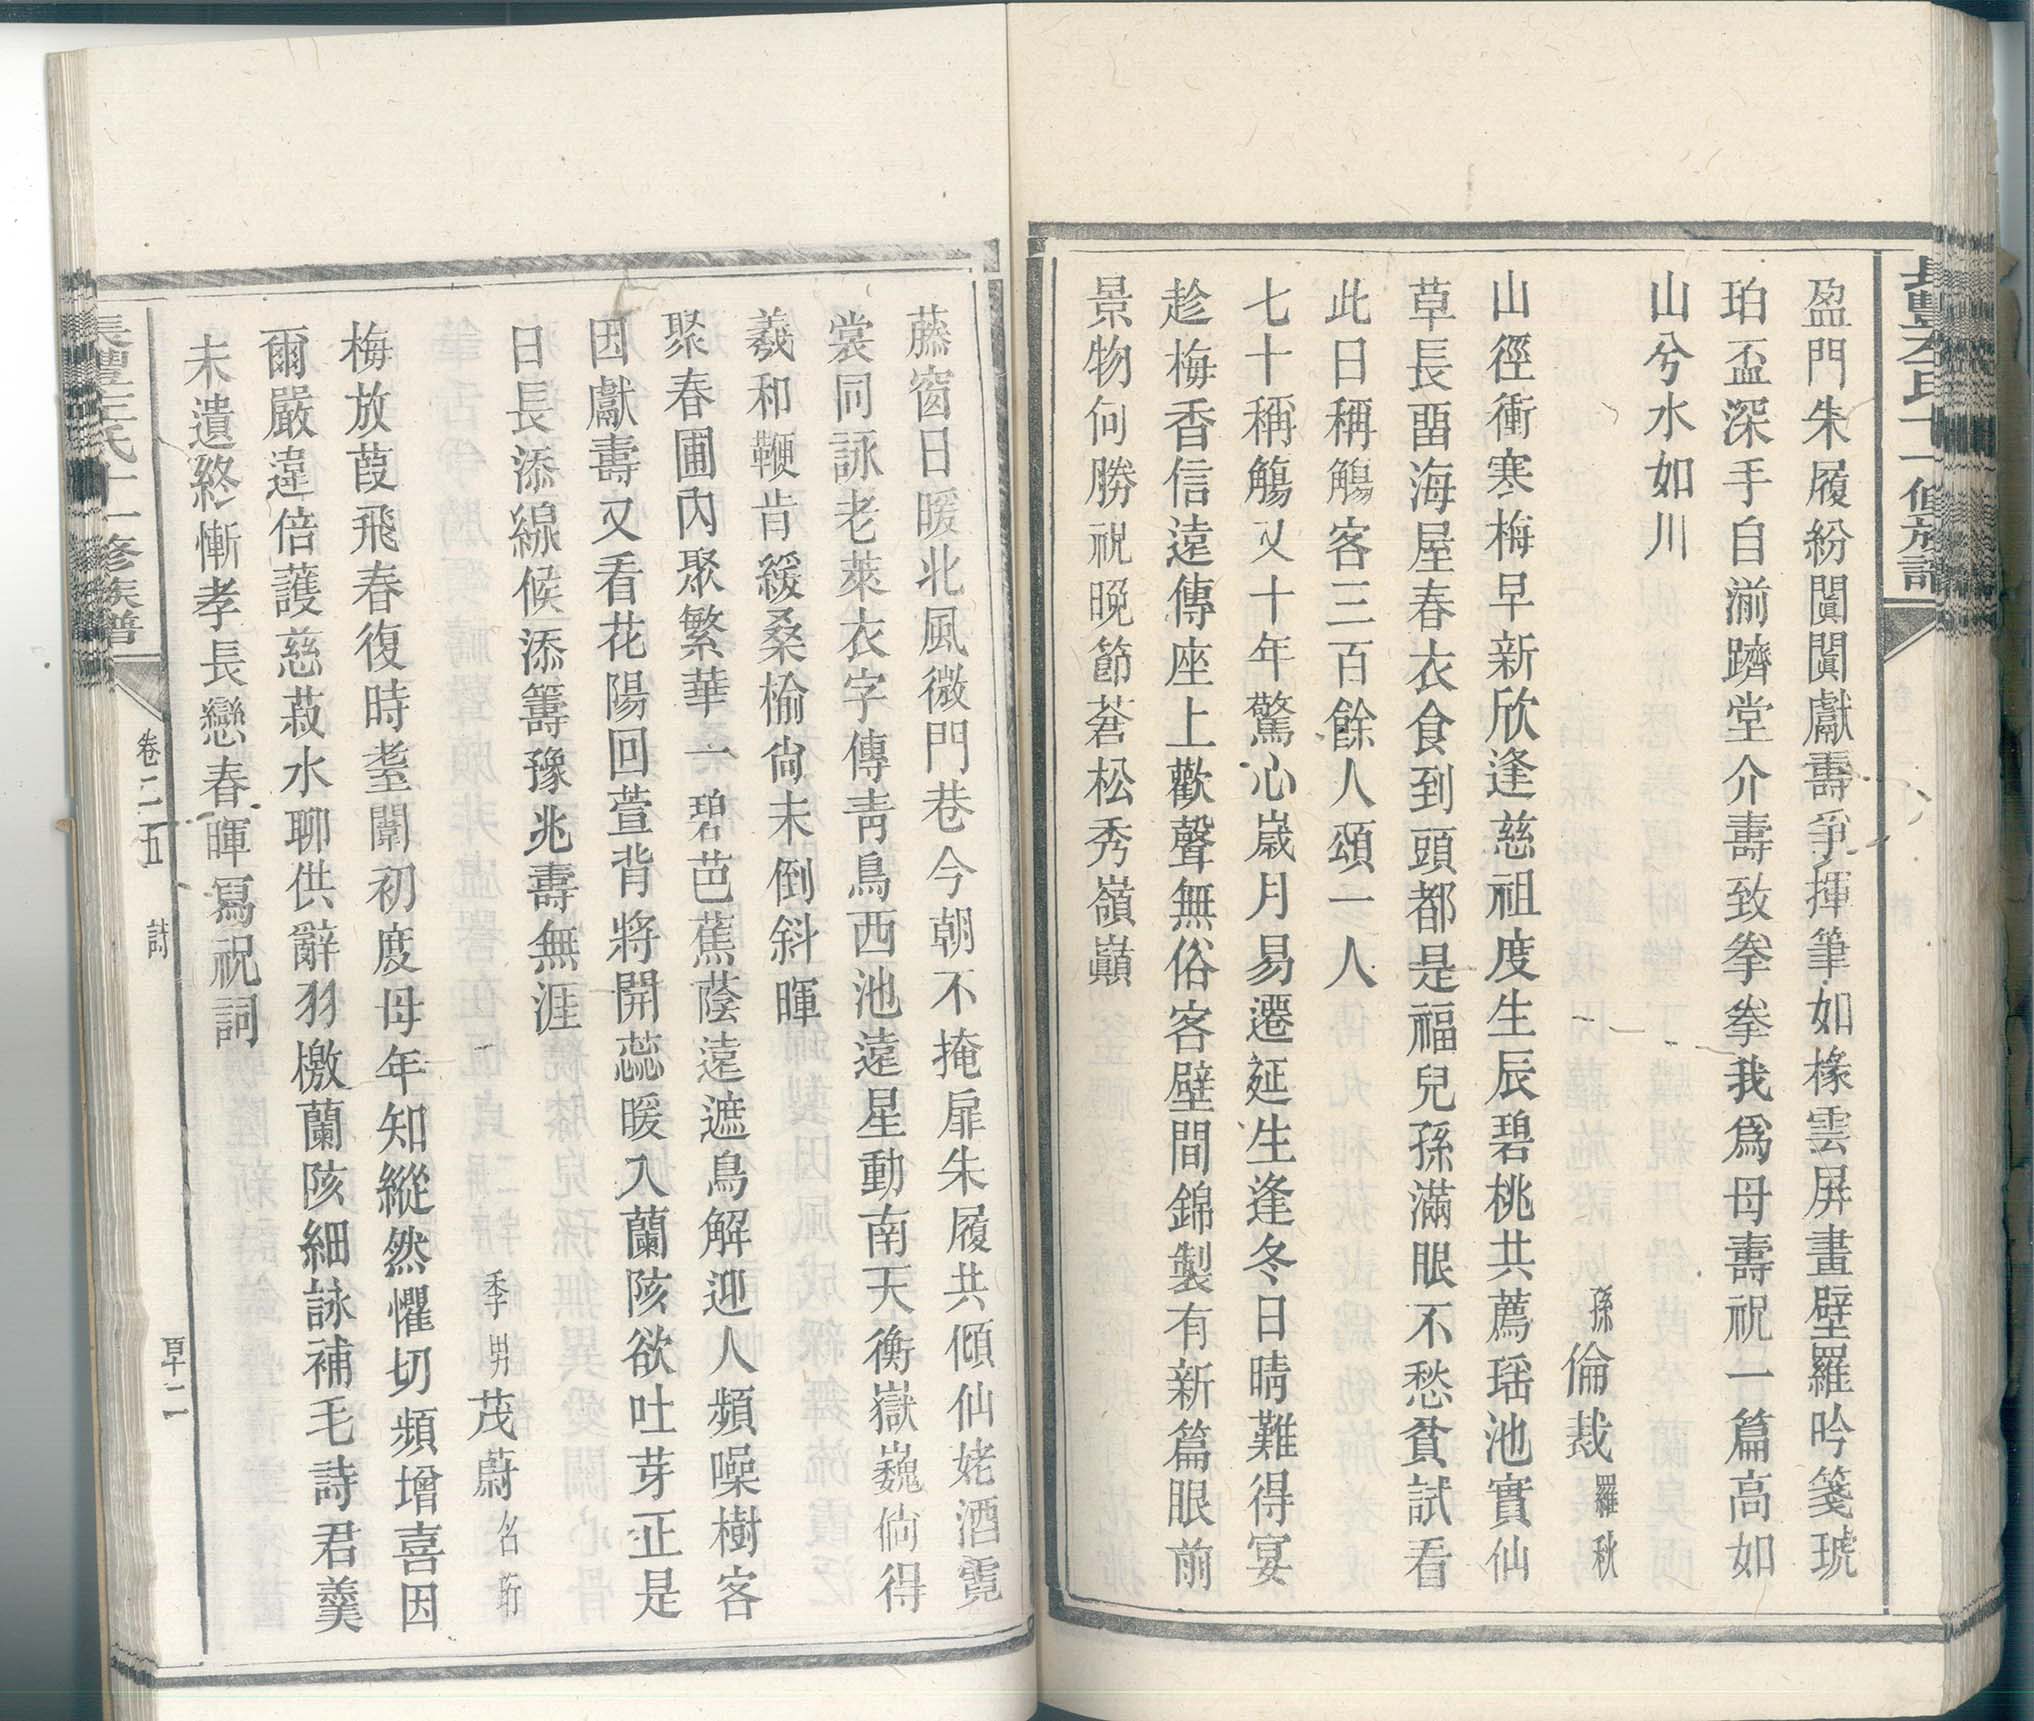 盈門朱履紛闐闐獻壽爭揮筆如椽雲屏畫壁羅吟箋琥
珀盃深手自湔躋堂介壽致拳拳我爲母壽祝一篇高如
山兮水如川
孫倫裁羅秋
山徑衝寒梅早新欣逢慈祖度生辰碧桃共薦瑶池實仙
草長畱海屋春衣食到頭都是福兒孫滿眼不愁貧試看
此日稱觴客三百餘人頌一人
七十稱觴又十年驚心歲月易遷延生逢冬日晴難得宴
趁梅香信遠傳座上歡聲無俗客壁間錦製有新篇眼前
景物何勝祝晚節蒼松秀嶺巔
藤窗日暖北風微門巷今朝不掩扉朱履共傾仙姥酒霓
裳同詠老萊衣字傳靑鳥西池遠星動南天衡嶽巍倘得
羲和鞭肯緩桑榆尙未倒斜暉
聚春圃內聚繁華一碧芭蕉蔭遠遮鳥解迎人頻噪樹客
因獻壽又看花陽回萱背將開蕊暖入蘭陔欲吐芽正是
日長添線候添籌豫兆壽無涯
季男茂蔚名珩
梅放葭飛春復時耋闈初度母年知縱然懼切頻增喜因
爾嚴違倍護慈菽水聊供辭羽檄蘭陔細詠補毛詩君羹
未遺終慚孝長戀春暉寫祝詞
長豐左氏十一修族譜
卷二五
詩
百十二